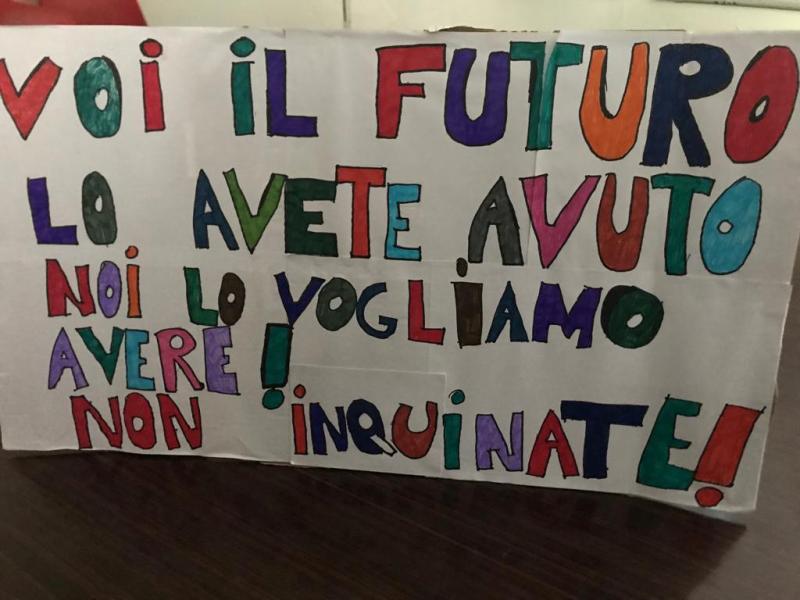 VOi iL FUTURO
LO AVETE AVUTO
NOi LO VOGLiAMO
AVERE!
NON iNQUiNATE!